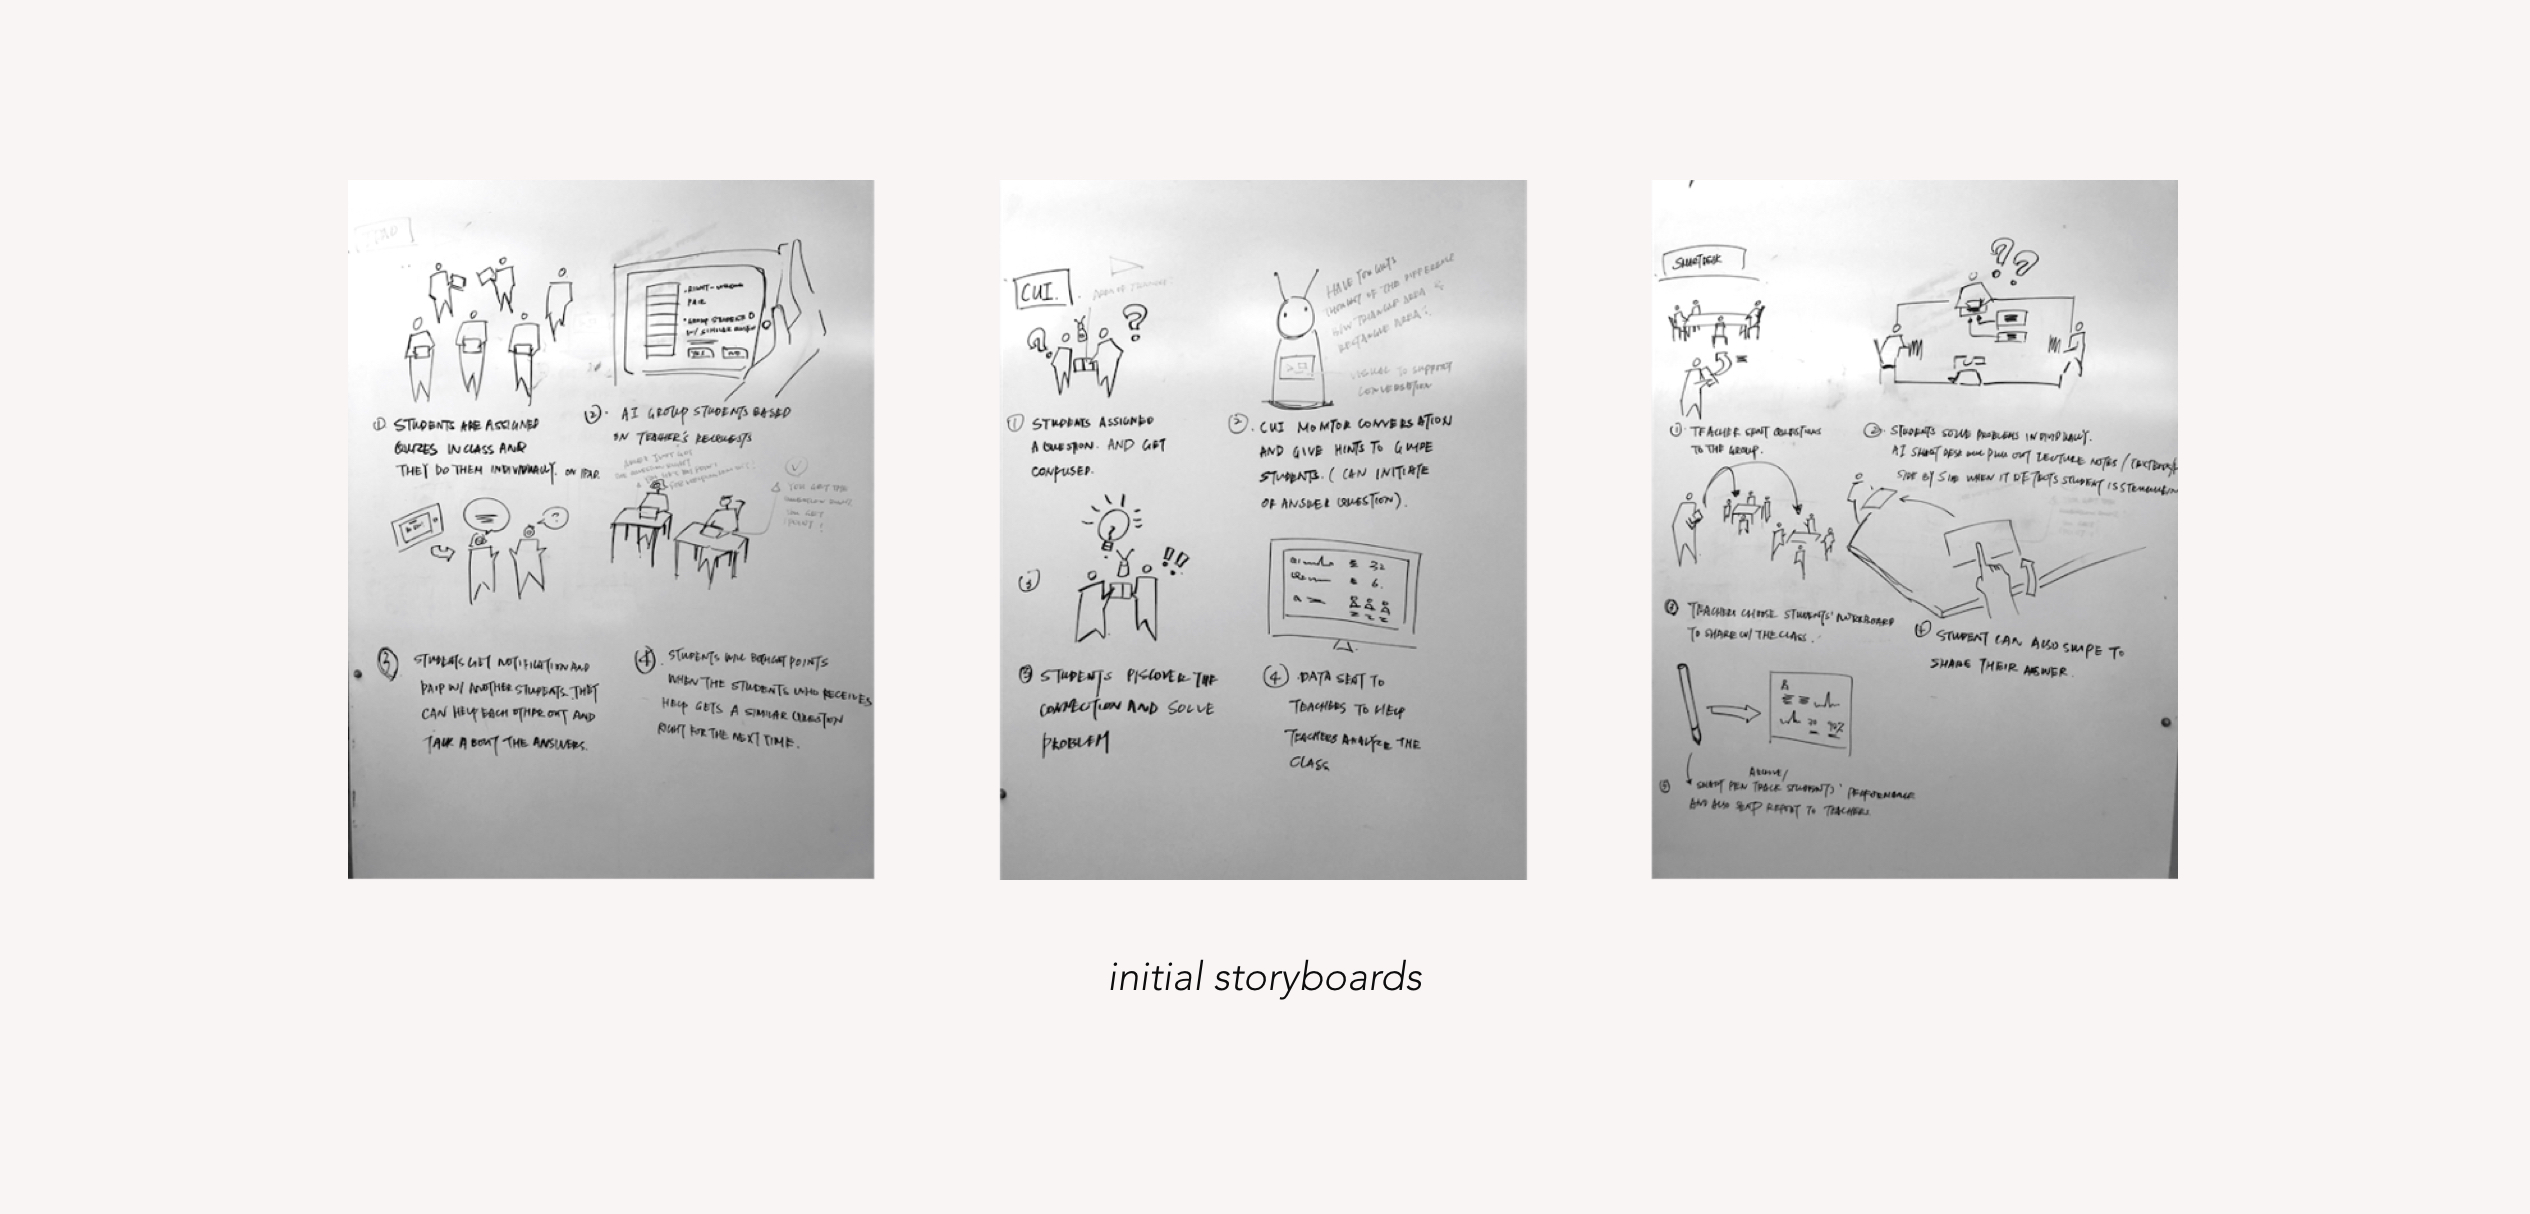 RIGHT-WRONG
PAIR
YES
NO
① STUDENTS ARE ASSIGNED
QUIZES IN CLASS AND
THEY DO THEM INDIVIDUALLY. ON IPAD
② AI GROUP STUDENTS BASED
ON TEACHER'S REQUESTS
YOU GET THE
③ STUDENTS GET NOTIFICATION AND
PAIR W/ ANOTHER STUDENTS. THEY
CAN HELP EACH OTHER OUT AND
TALK ABOUT THE ANSWERS.
④ STUDENTS WILL BOTH GET POINTS
WHEN THE STUDENTS WHO RECEIVES
HELP GETS A SIMILAR QUESTION
RIGHT FOR THE NEXT TIME.
CUI.
HAVE YOU GUYS
THOUGHT OF THE DIFFERENCE
B/W TRIANGLE AREA &
RECTANGLE AREA?
VISUAL TO SUPPORT
CONVERSATION
① STUDENTS ASSIGNED
A QUESTION. AND GET
CONFUSED.
②. CUI MONITOR CONVERSATION
AND GIVE HINTS TO GUIDE
STUDENTS. ( CAN INITIATE
OR ANSWER QUESTION).
③
③ STUDENTS DISCOVER THE
CONNECTION AND SOLVE
PROBLEM
④ DATA SENT TO
TEACHERS TO HELP
TEACHERS ANALYZE THE
CLASS
SMARTDESK
① TEACHER SENT QUESTIONS
TO THE GROUP.
② STUDENTS SOLVE PROBLEMS INDIVIDUALLY.
AI SMART DESK WILL PULL OUT LECTURE NOTES /
SIDE BY SIDE WHEN IT DETECTS STUDENT IS
③ TEACHERS CHOOSE STUDENTS' WORKBOARD
TO SHARE W/ THE CLASS.
④ STUDENT CAN ALSO SWIPE TO
SHARE THEIR ANSWER.
⑤ SMART PEN TRACK STUDENTS' PERFORMANCE
AND ALSO SEND REPORT TO TEACHERS
initial storyboards